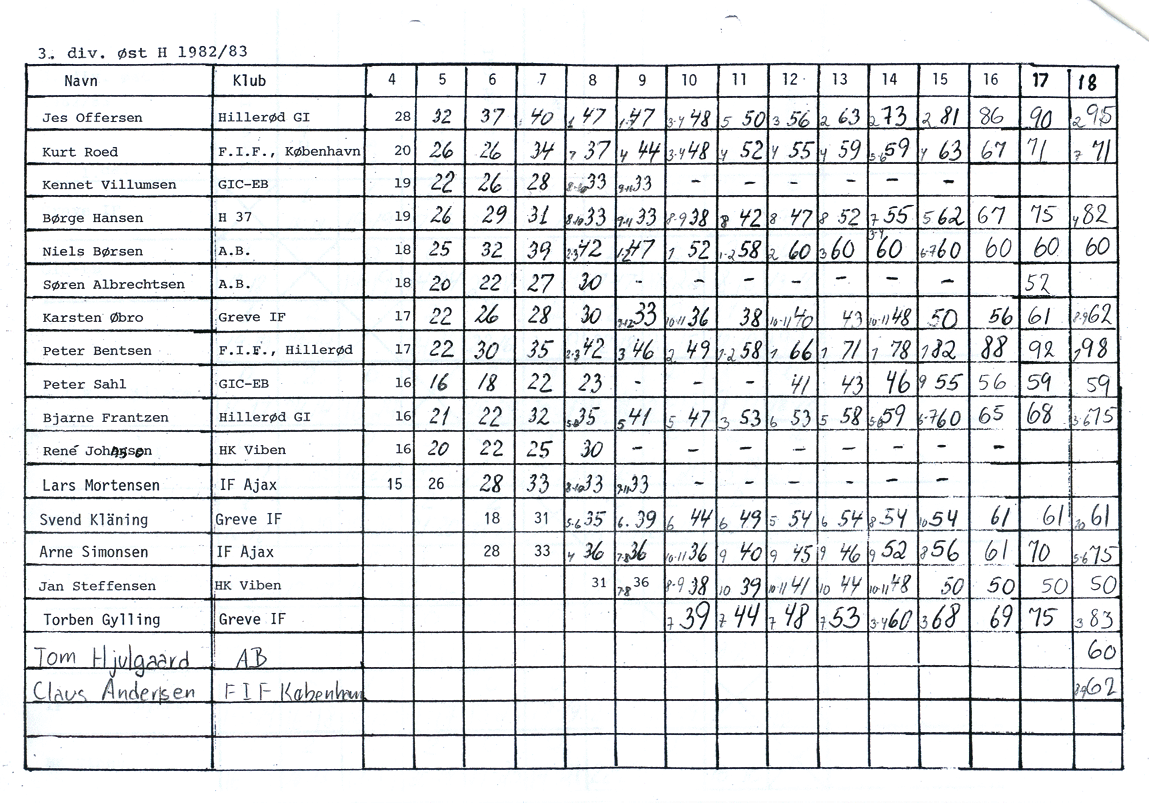 3. div. øst H 1982/83
Navn Klub 4 5 6 7 8 9 10 11 12 13 14 15 16 17 18
Jes Offersen Hillerød GI 28 32 37 40 1 47 1-2 47 3-4 48 5 50 3 56 2 63 2 73 2 81 86 90 2 95
Kurt Roed F.I.F., København 20 26 26 34 7 37 4 44 3-4 48 4 52 4 55 4 59 5-6 59 4 63 67 71 7 71
Kennet Villumsen GIC-EB 19 22 26 28 8-10 33 9-11 33 - - - - - -
Børge Hansen H 37 19 26 29 31 8-10 33 9-11 33 8-9 38 8 42 8 47 8 52 7 55 5 62 67 75 4 82
Niels Børsen A.B. 18 25 32 39 2-3 42 1-2 47 1 52 1-2 58 2 60 3 60 3-4 60 6-7 60 60 60 60
Søren Albrechtsen A.B. 18 20 22 27 30 - - - - - - - 52
Karsten Øbro Greve IF 17 22 26 28 30 33 10-11 36 38 10-11 40 43 10-11 48 50 56 61 8-9 62
Peter Bentsen F.I.F., Hillerød 17 22 30 35 2-3 42 3 46 2 49 1-2 58 1 66 1 71 1 78 1 82 88 92 1 98
Peter Sahl GIC-EB 16 16 18 22 23 - - - 41 43 46 9 55 56 59 59
Bjarne Frantzen Hillerød GI 16 21 22 32 5-6 35 5 41 5 47 3 53 6 53 5 58 5-6 59 6-7 60 65 68 5-6 75
René Johanson HK Viben 16 20 22 25 30 - - - - - - - -
Lars Mortensen IF Ajax 15 26 28 33 8-10 33 9-11 33 - - - - - -
Svend Kläning Greve IF 18 31 5-6 35 6. 39 6 44 6 49 5 54 6 54 8 54 10 54 61 61 10 61
Arne Simonsen IF Ajax 28 33 4 36 7-8 36 10-11 36 9 40 9 45 9 46 9 52 8 56 61 70 5-6 75
Jan Steffensen HK Viben 31 7-8 36 8-9 38 10 39 10-11 41 10 44 10-11 48 50 50 50 50
Torben Gylling Greve IF 7 39 7 44 7 48 7 53 3-4 60 3 68 69 75 3 83
Tom Hjulgaard AB 60
Claus Andersen FIF København 8-9 62